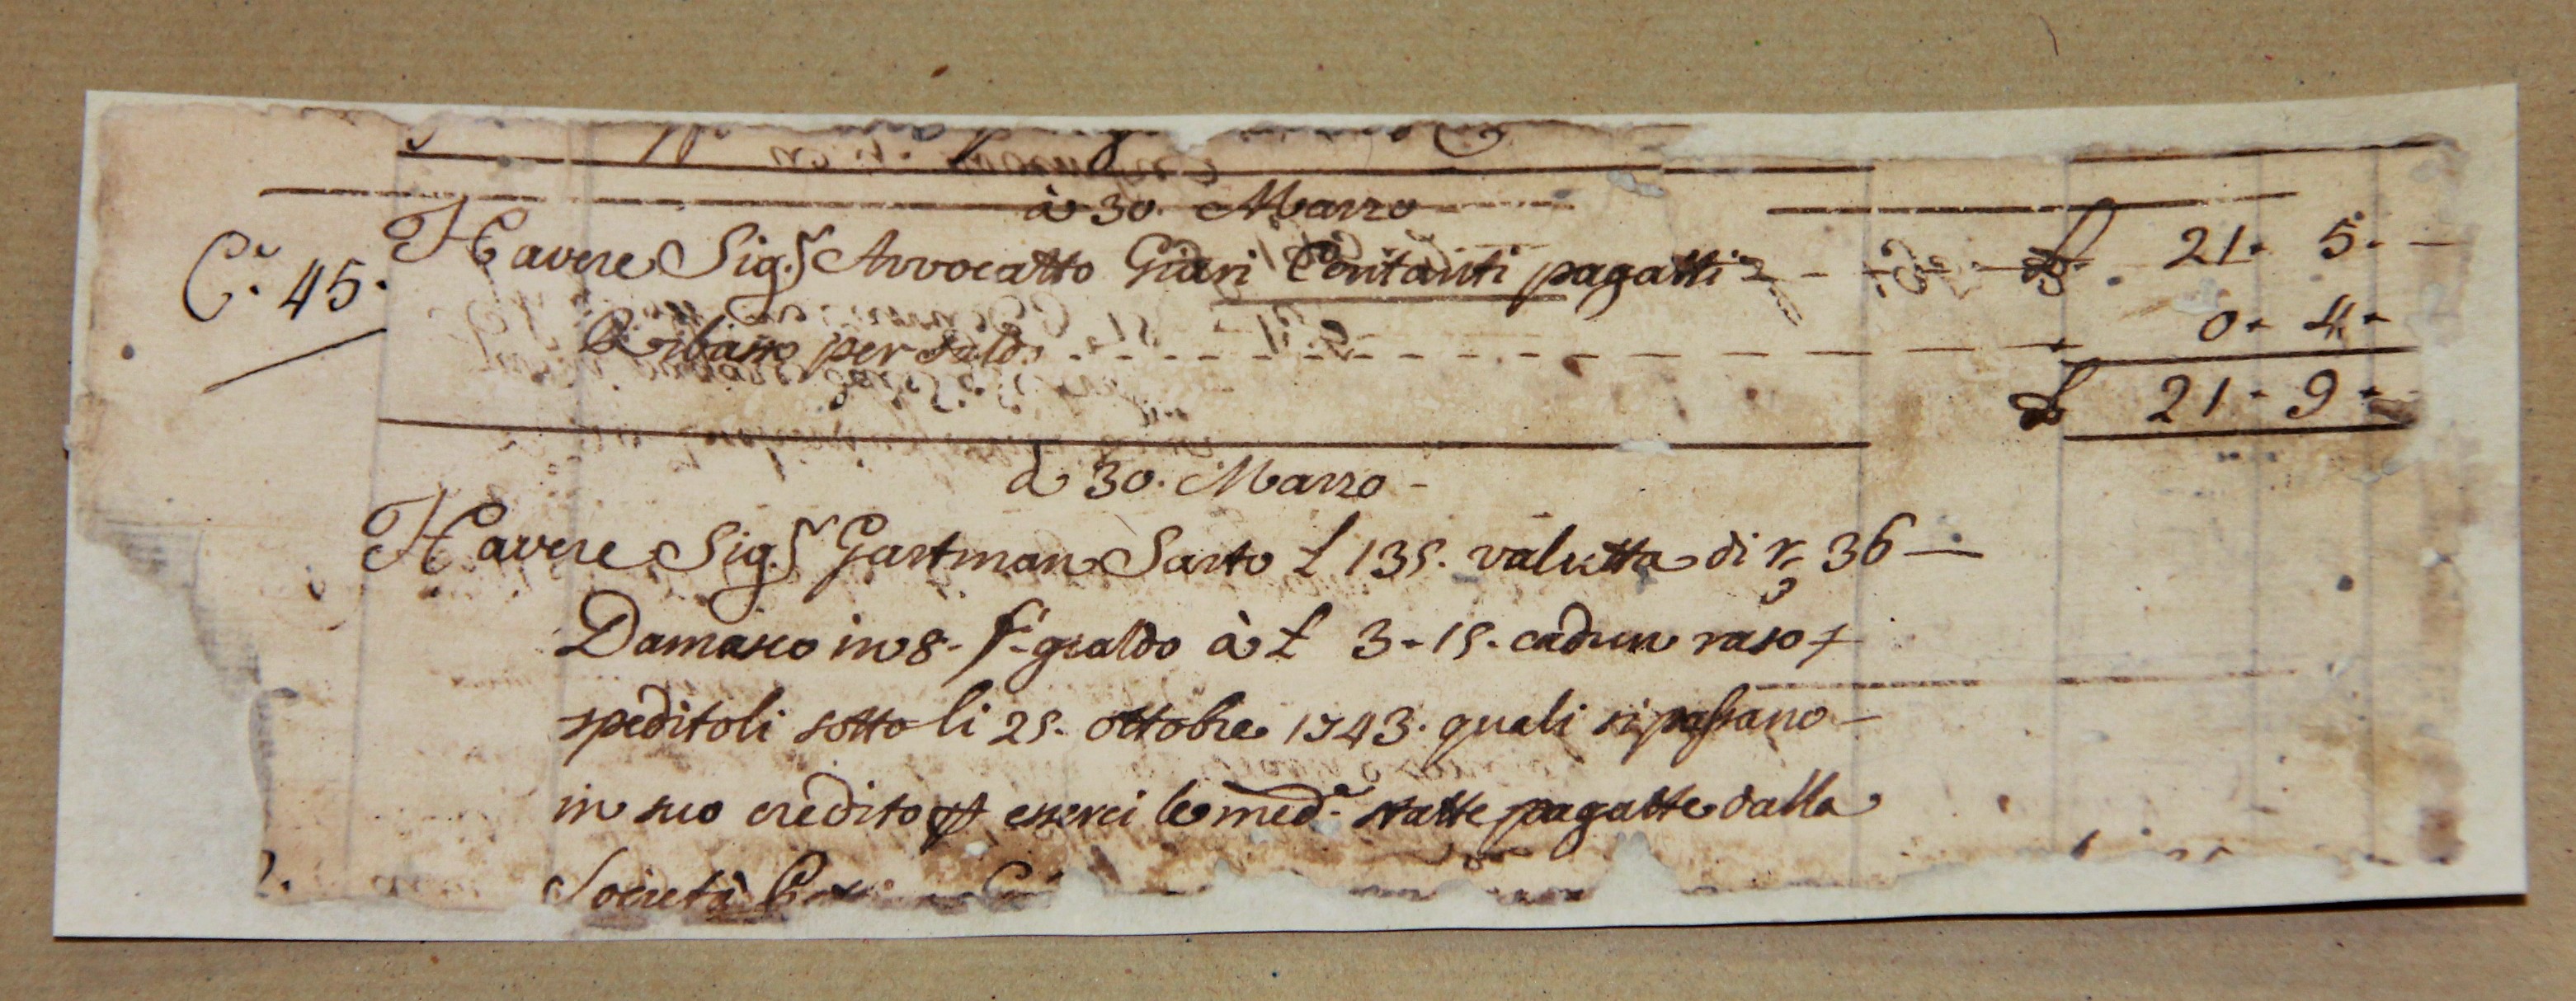 à 30. Marzo
C.ª 45. Havere Sig.r Avvocatto Giari Contanti pagatti £ 21. 5.
Ribasso per saldo 0. 4.
£ 21. 9.
à 30. Marzo
Havere Sig.r Gartman Sarto £ 135. valutta di r. 36
Damasco in 8. gialdo à £ 3. 15. cadun raso
speditoli sotto li 25. ottobre 1743. quali si passano
in suo credito esserci le med.e statte pagatte dalla
Società